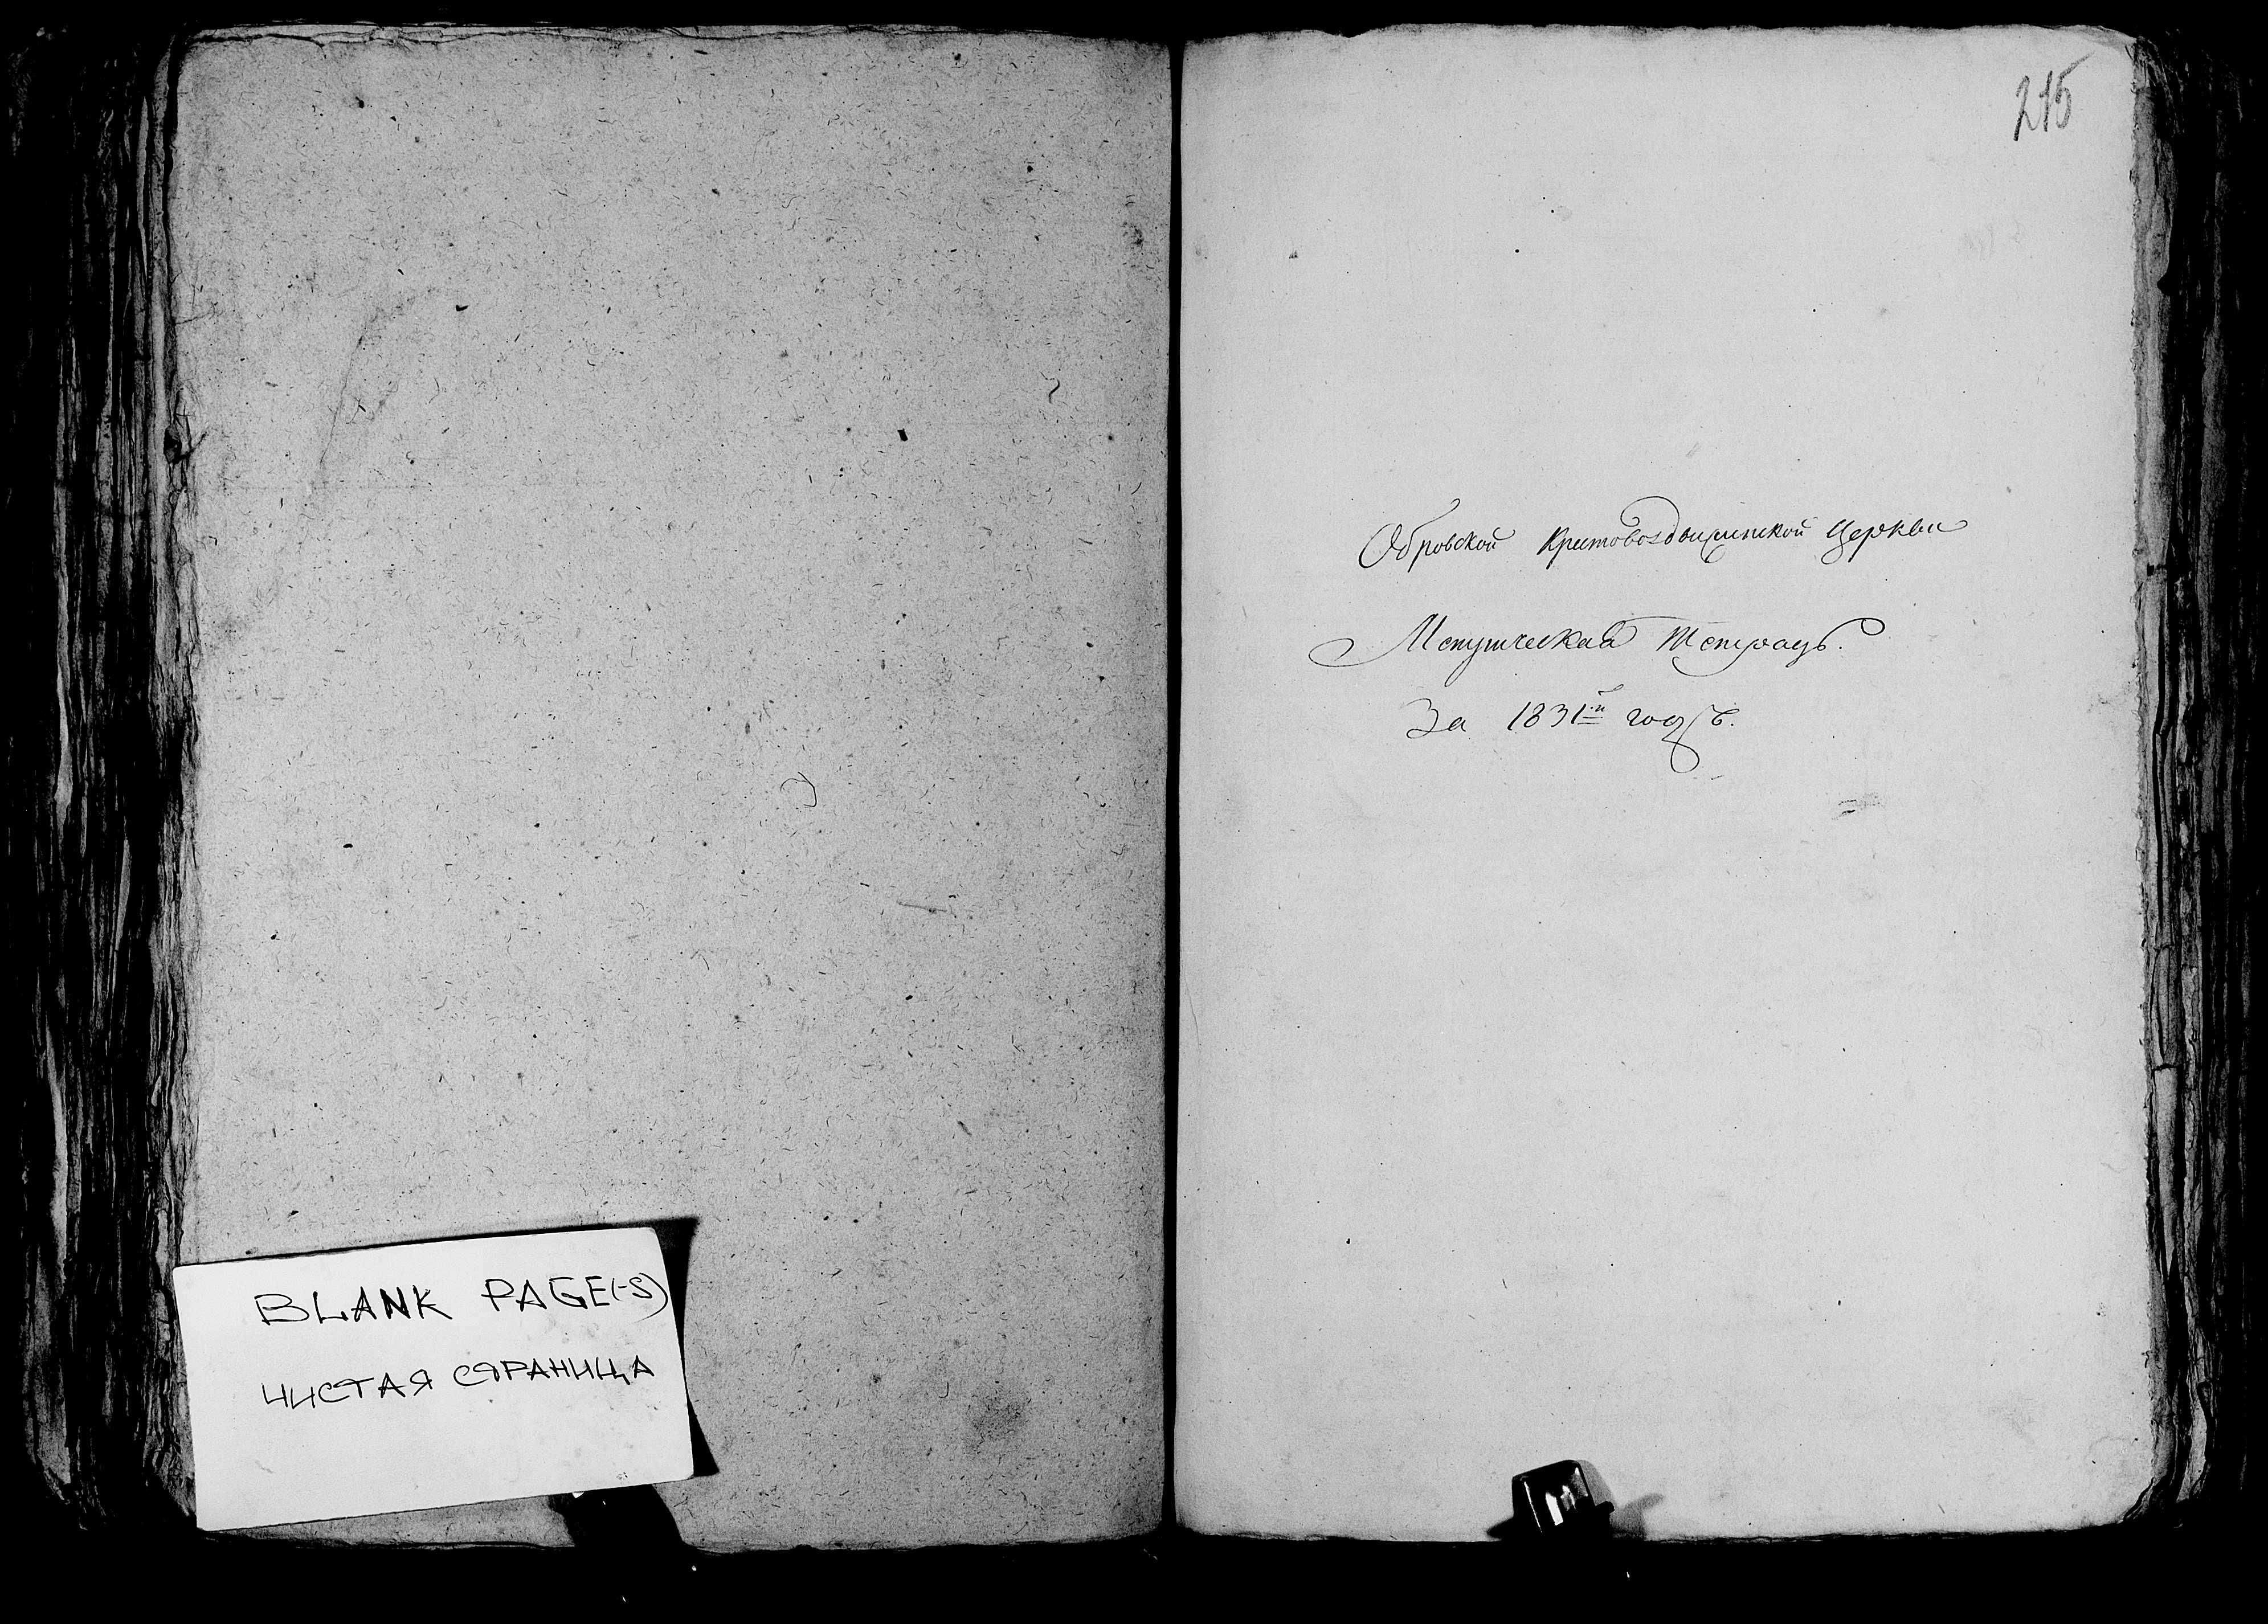 BLANK PAGE(-S)
ЧИСТАЯ СТРАНИЦА
215
Обровской Крестовоздвиженской Церкви
Метрическая Тетрадь.
За 1831й годъ.